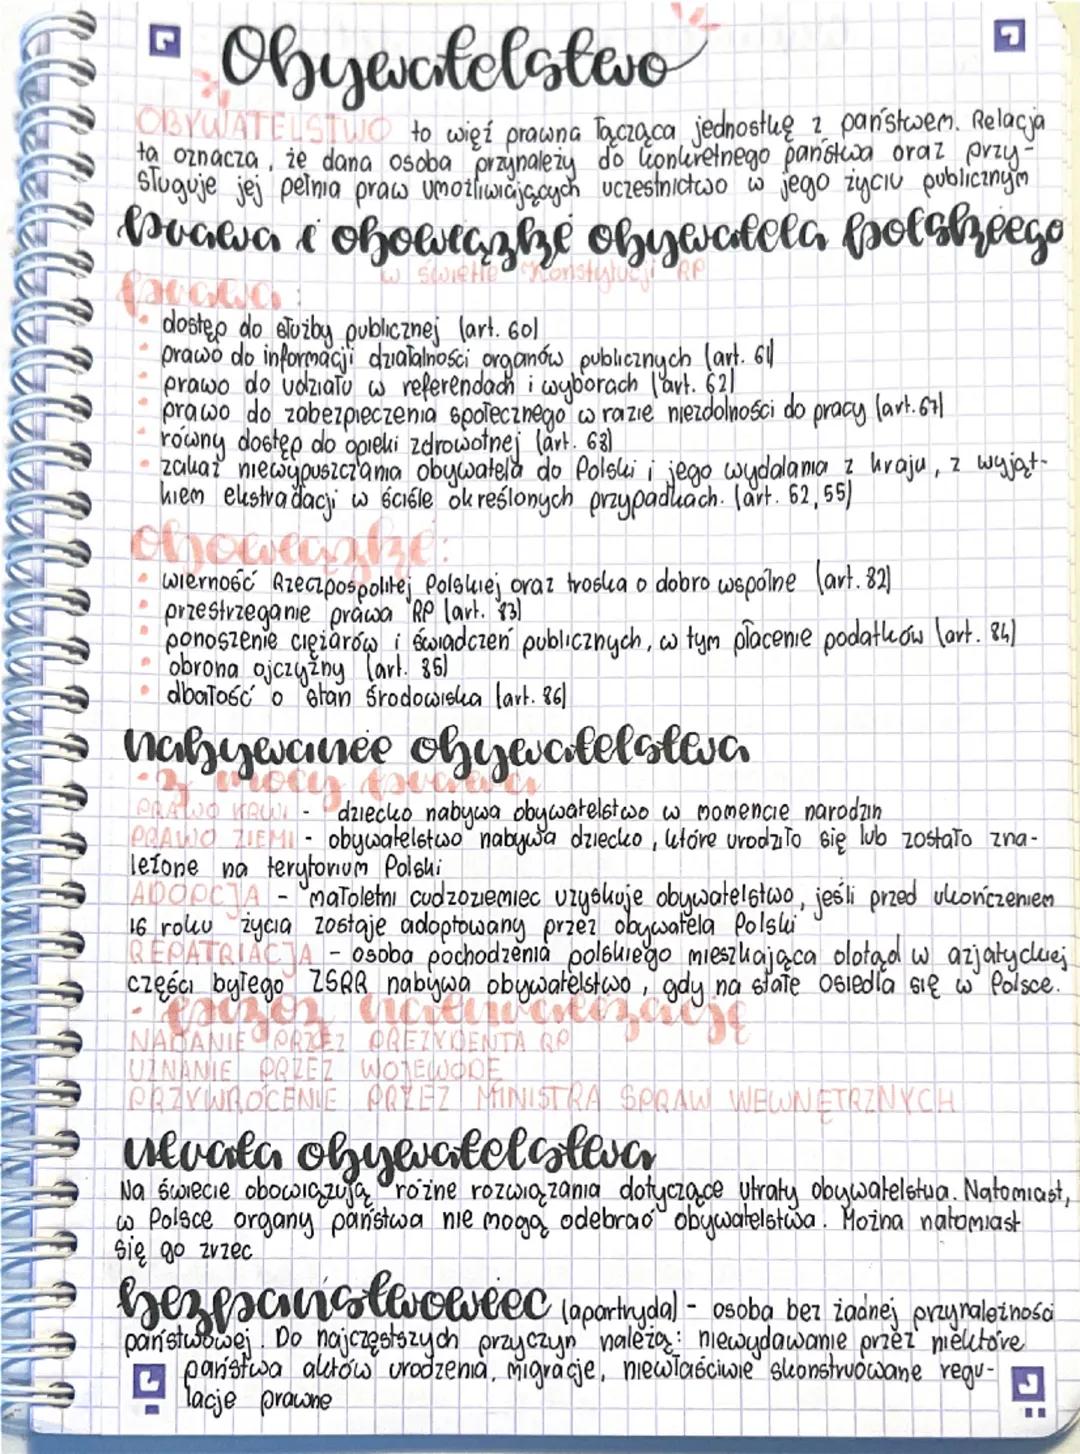 Obywatelstwo
OBYWATELSTWO to więź prawna łącząca jednostkę z państwem. Relacja
ta oznacza, że dana osoba przynależy do konkretnego państwa oraz przy-
sługuje jej pełnia praw umożliwiających uczestnictwo w jego życiu publicznym
Prawa i obowiązki obywatela polskiego
w świetle Konstytucji RP
Prawa:
• dostęp do służby publicznej (art. 60)
• prawo do informacji działalności organów publicznych (art. 61)
• prawo do udziału w referendach i wyborach (art. 62)
• prawo do zabezpieczenia społecznego w razie niezdolności do pracy (art. 67)
• równy dostęp do opieki zdrowotnej (art. 68)
• zakaz niewypuszczania obywatela do Polski i jego wydalania z kraju, z wyjąt-
kiem ekstradacji w ściśle określonych przypadkach. (art. 52, 55)
obowiązki:
• wierność Rzeczpospolitej Polskiej oraz troska o dobro wspólne (art. 82)
• przestrzeganie prawa RP (art. 83)
• ponoszenie ciężarów i świadczeń publicznych, w tym płacenie podatków (art. 84)
• obrona ojczyzny (art. 85)
• dbałość o stan środowiska (art. 86)
nabywanie obywatelstwa
- z mocy prawa
PRAWO KRWI - dziecko nabywa obywatelstwo w momencie narodzin
PRAWO ZIEMI - obywatelstwo nabywa dziecko, które urodziło się lub zostało zna-
lezione na terytorium Polski
ADOPCJA - małoletni cudzoziemiec uzyskuje obywatelstwo, jeśli przed ukończeniem
16 roku życia zostaje adoptowany przez obywatela Polski
REPATRIACJA - osoba pochodzenia polskiego mieszkająca dotąd w azjatyckiej
części byłego ZSRR nabywa obywatelstwo, gdy na stałe osiedla się w Polsce.
- przez naturalizację
NADANIE PRZEZ PREZYDENTA RP
UZNANIE PRZEZ WOJEWODĘ
PRZYWRÓCENIE PRZEZ MINISTRA SPRAW WEWNĘTRZNYCH
utrata obywatelstwa
Na świecie obowiązują różne rozwiązania dotyczące utraty obywatelstwa. Natomiast,
w Polsce organy państwa nie mogą odebrać obywatelstwa. Można natomiast
się go zrzec
bezpaństwowiec (apartryda) - osoba bez żadnej przynależności
państwowej. Do najczęstszych przyczyn należą: niewydawanie przez niektóre
państwa aktów urodzenia, migracje, niewłaściwie skonstruowane regu-
lacje prawne